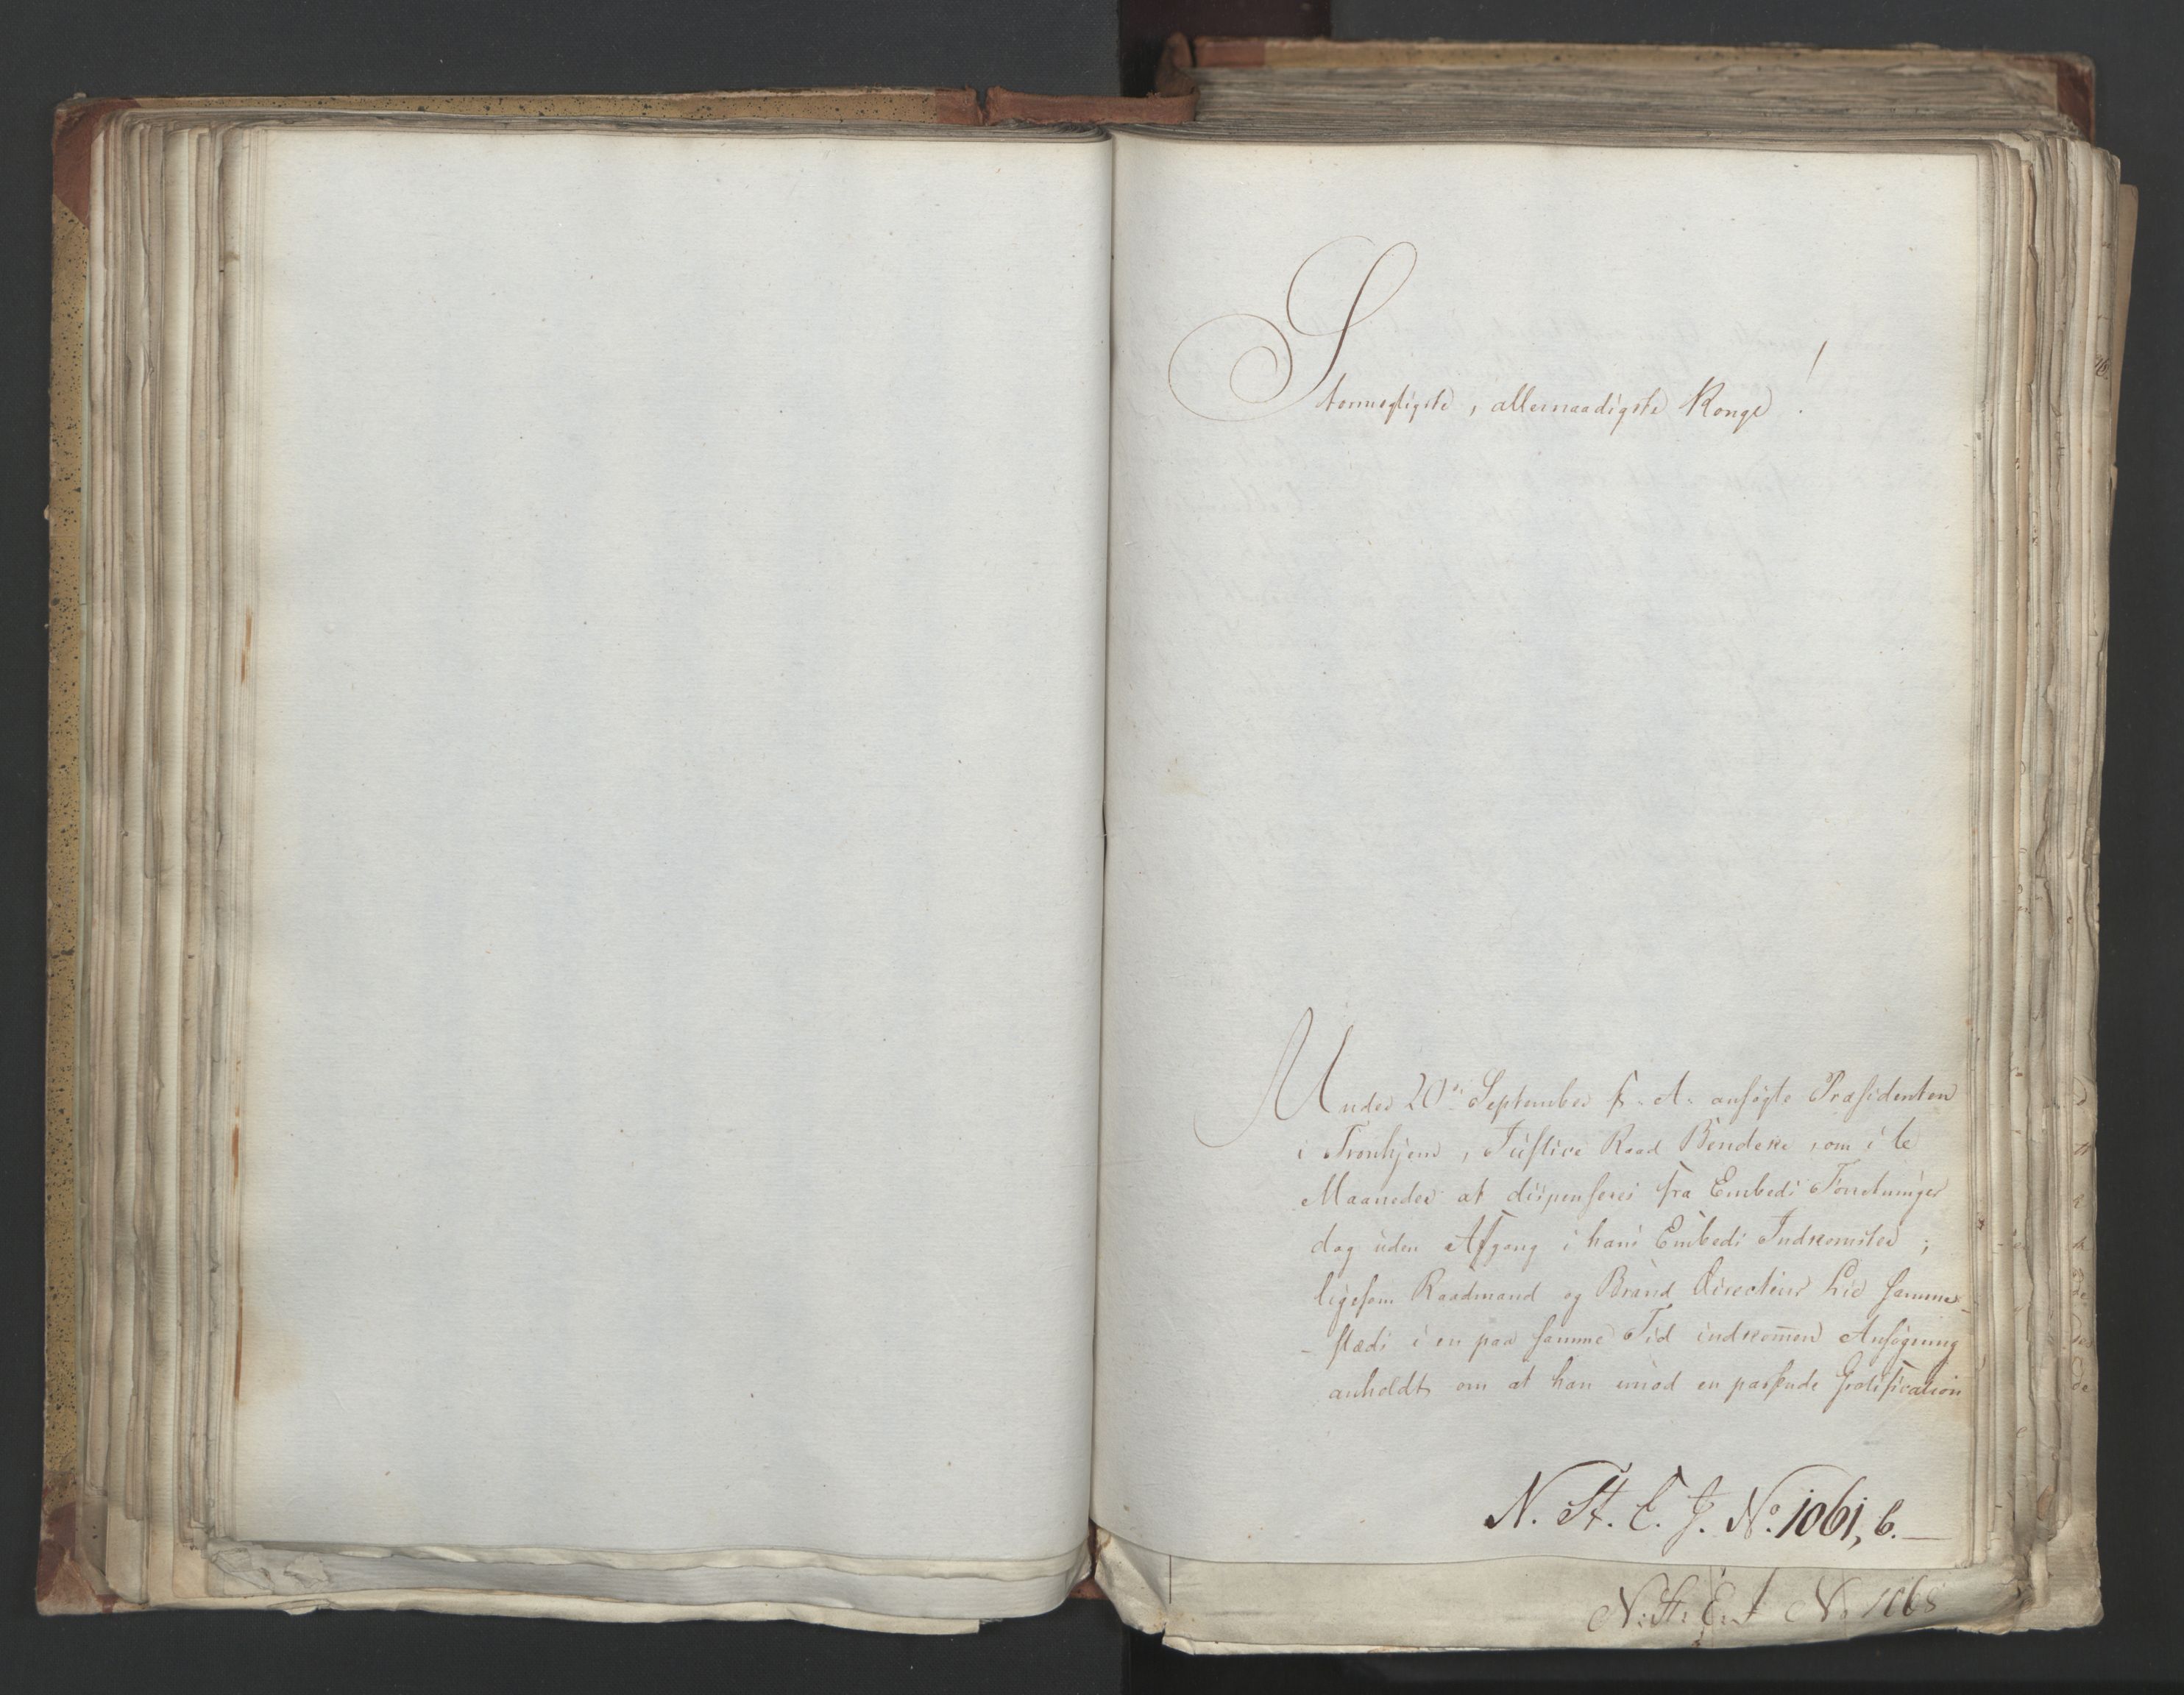 Stormægtigste, allernaadigste Konge!
Under 20de September f. A. ansøgte Præsidenten
i Tronhjem, Justice Raad Bendeke, om i 6
Maaneder at dispenseres fra Embeds Forretninger
dog uden Afgang i hans Embeds Indkomster;
ligesom Raadmand og Brand Directeur Lie samme-
-steds i en paa samme Tid indkom̄en Ansøgning
anholdt om at han imod en passende Gratification
N. St. E. J. No. 1061, b.—
N: St: E: J No 1068